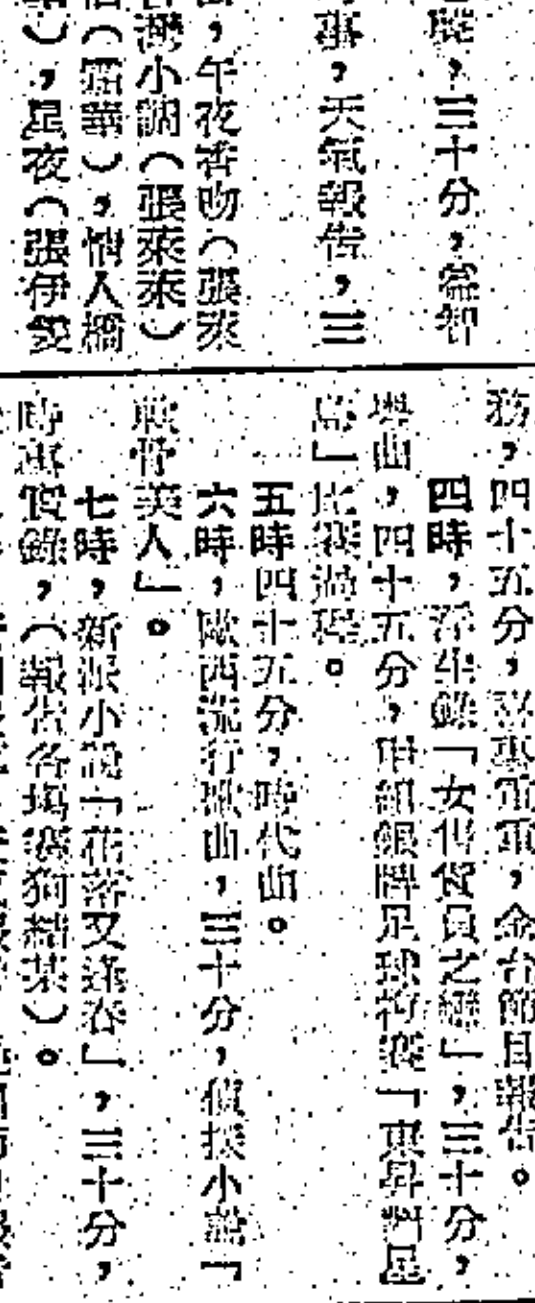 ，三十分，益智
事，天氣報告，三
，午夜香吻（張來
台灣小調（張來來）
（露華），情人橋
），星夜（張伊雯
務，四十五分，喜事重重，金台節目報告。
四時，浮生錄「女售貨員之戀」，三十分，
粵曲，四十五分，甲組銀牌足球初賽「東昇對星
島」比賽過程。
五時四十五分，時代曲。
六時，歐西流行歌曲，三十分，偵探小說「
軟骨美人」。
七時，新派小說「花落又逢春」，三十分，
時事實錄，（報告各場賽狗結果）。